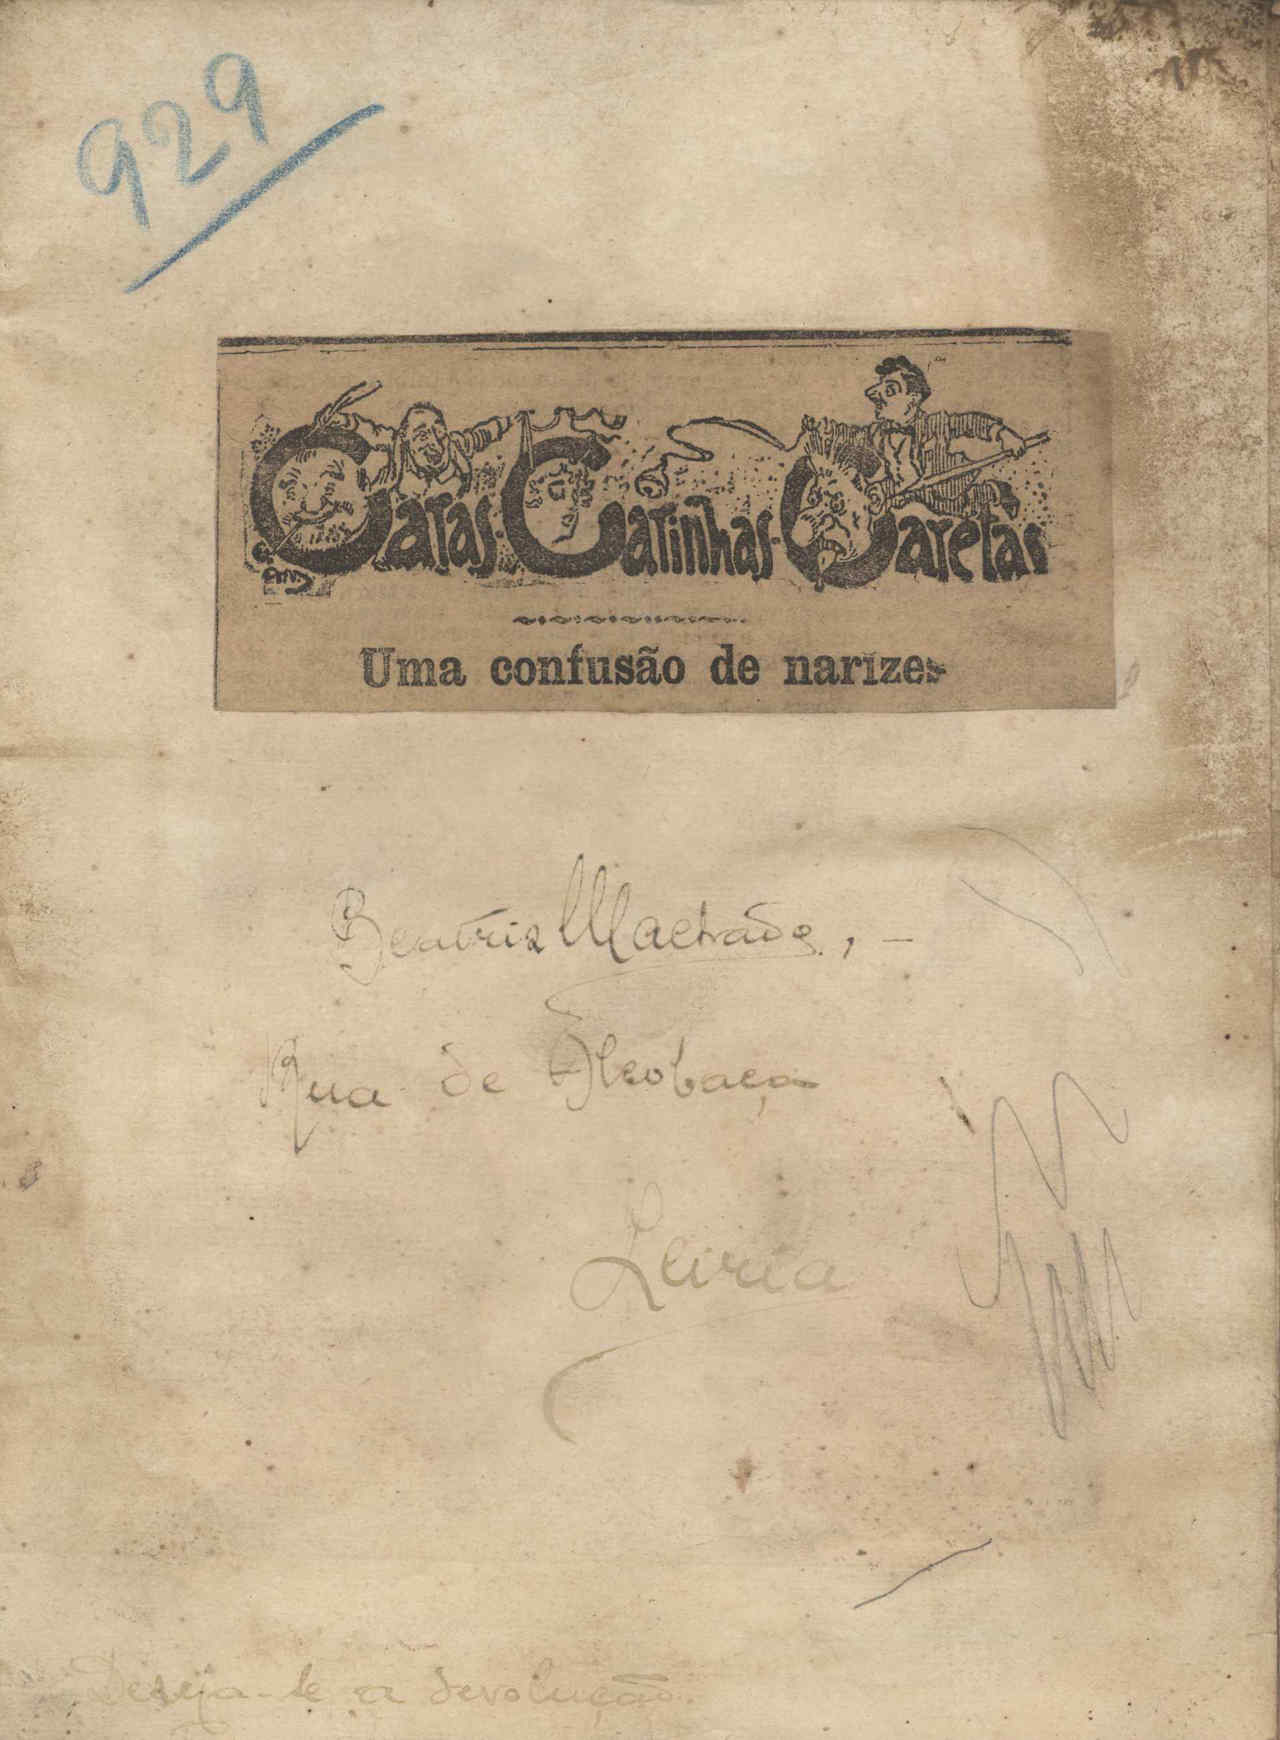 929
Caras-Carinhas-Caretas
Uma confusão de narizes
Beatriz Machado, -
Rua de Alcobaça
Leiria
Deseja-se a devolução.